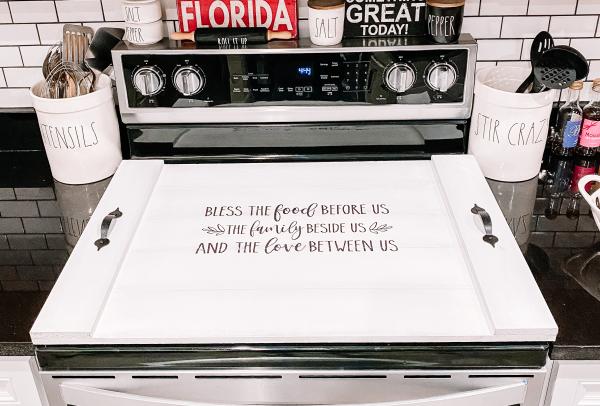 SALT
PEPPER
FLORIDA
ROLL IT UP
SALT
SOMETHING
GREAT
TODAY!
PEPPER
UTENSILS
STIR CRAZ
BLESS THE food BEFORE US
THE family BESIDE US
AND THE love BETWEEN US